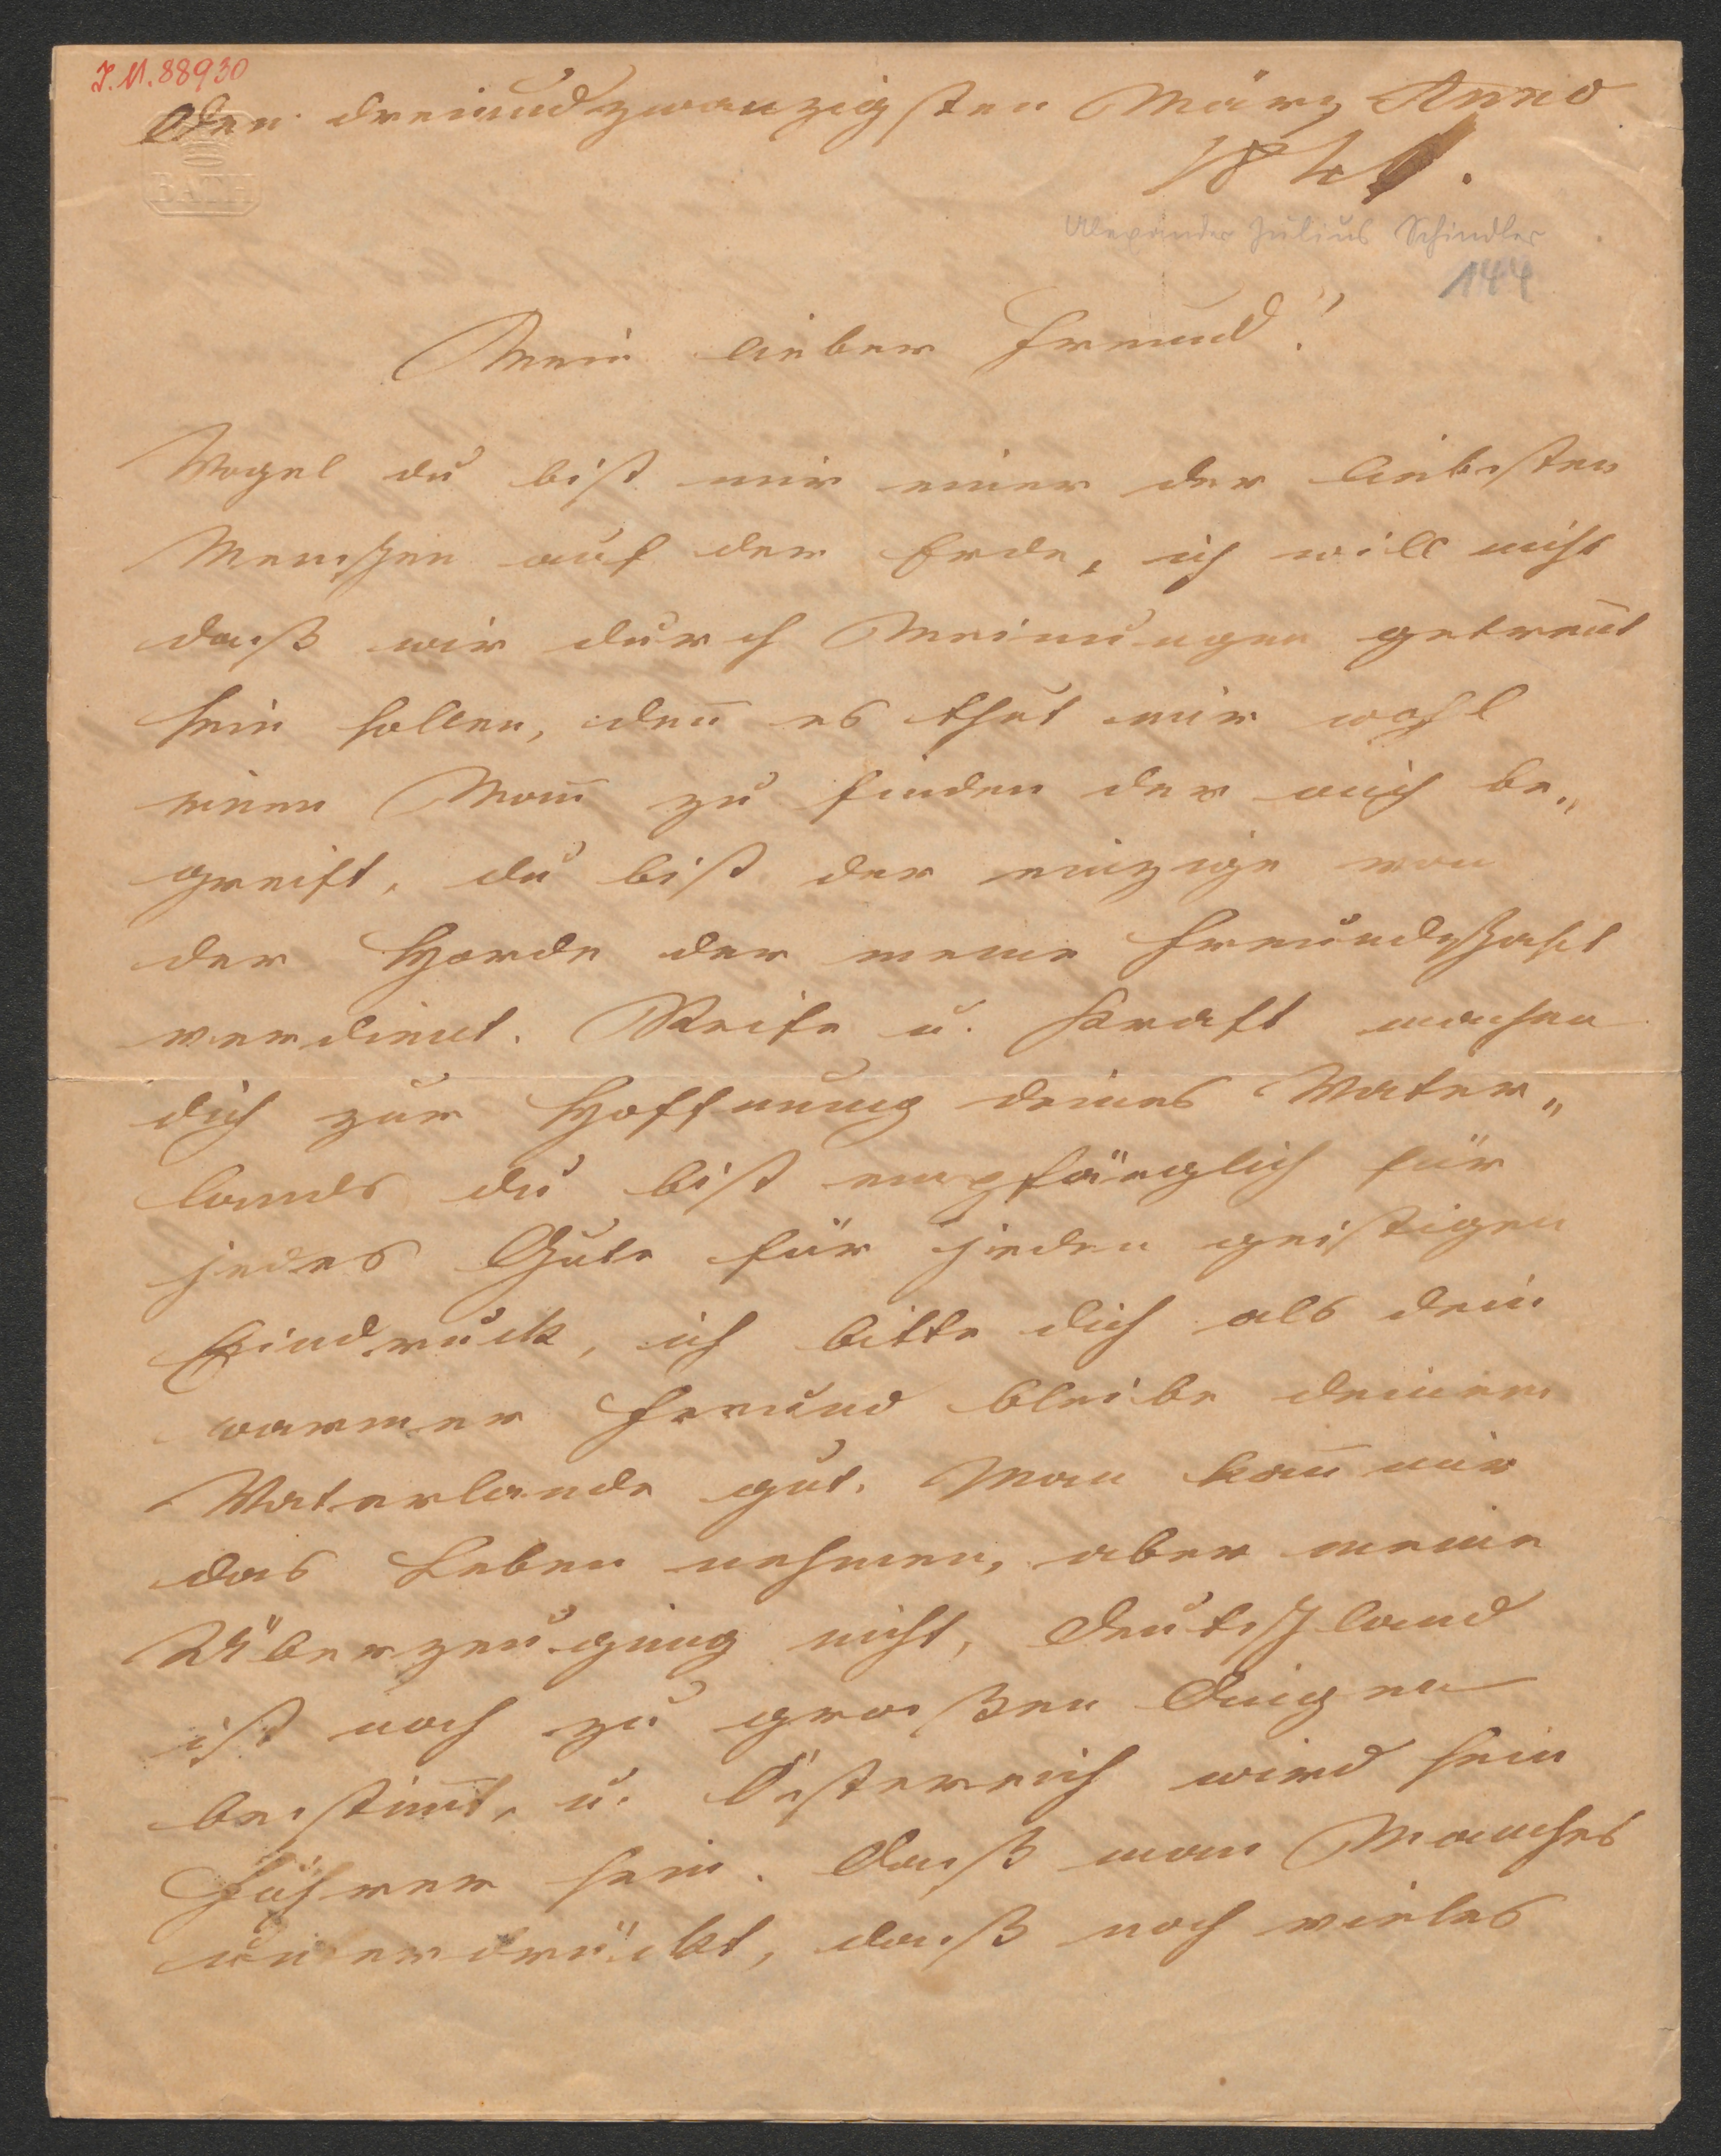 I. N. 88930
Den dreiundzwanzigsten März Anno
184
BATH
Alexander Julius Schindler
144
Mein lieber Freund!
Vogel du bist mir einer der liebsten
Menschen auf der Erde, ich will nicht
daß wir durch Meinungen getrent̄
sein sollen, den̄ es thut mir wohl
einen Man̄ zu finden der mich be„
greift, du bist der einzige von
der Horde der meine Freundschaft
verdient. Reife u. Kraft machen
dich zur Hoffnung deines Vater„
lands du bist empfänglich für
jedes Gute für jeden geistigen
Eindruck, ich bitte dich als dein
warmer Freund bleibe deinem
Vaterlande gut. Man kan̄ mir
das Leben nehmen, aber meine
Überzeugung nicht, Deutschland
ist noch zu großen Dingen
bestim̄t, u. Östereich wird sein
Führer sein. Daß man Manches
unterdrückt, daß noch vieles